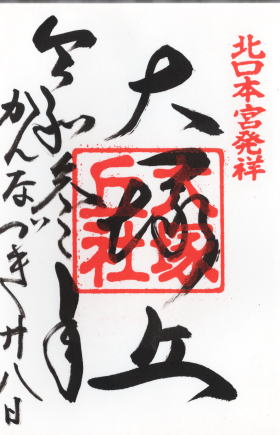 北口本宮発祥
大塚丘
大塚丘社
令和参年
かんなづき廿八日